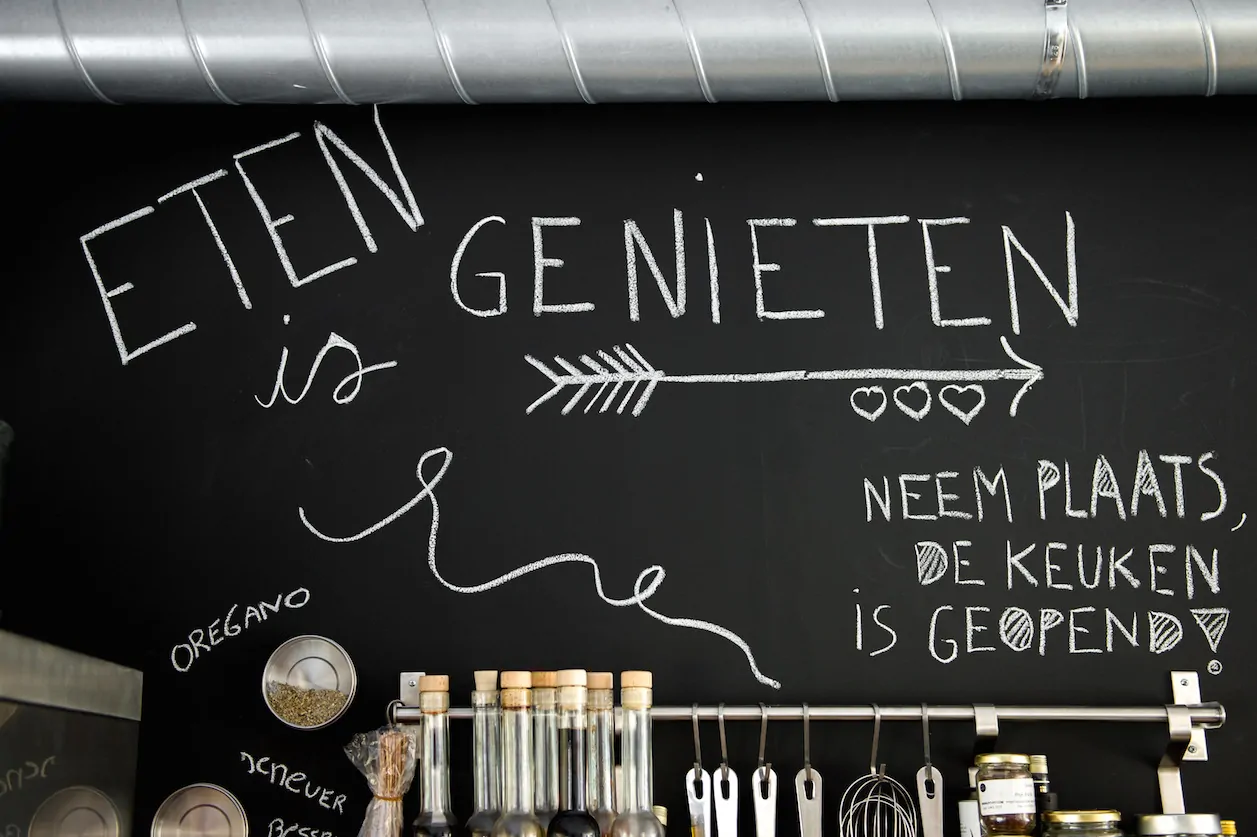 ETEN
is
GENIETEN
NEEM PLAATS,
DE KEUKEN
iS GEOPEND!
OREGANO
JENEVER